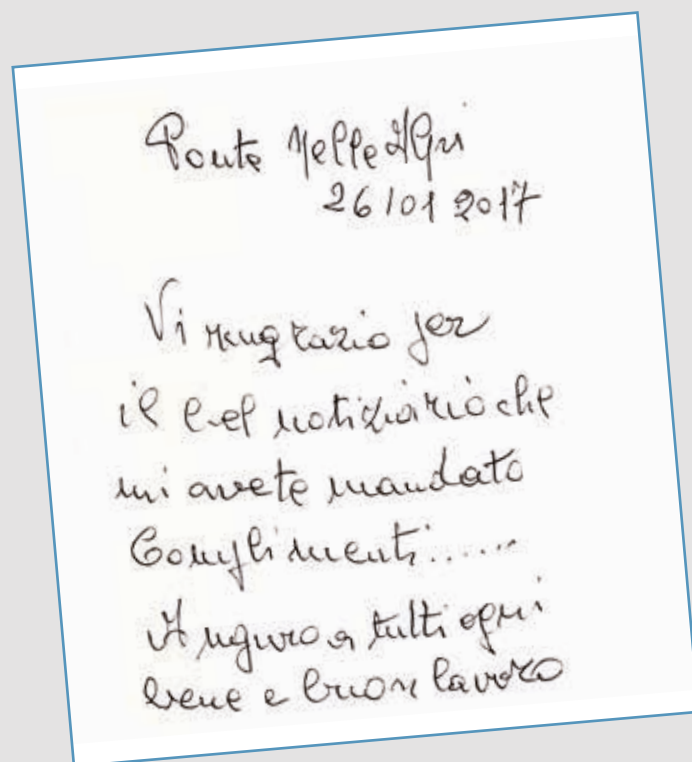 Ponte Nelle Alpi
26/01 2017
Vi ringrazio per
il bel notiziario che
mi avete mandato
Complimenti......
Auguro a tutti ogni
bene e buon lavoro